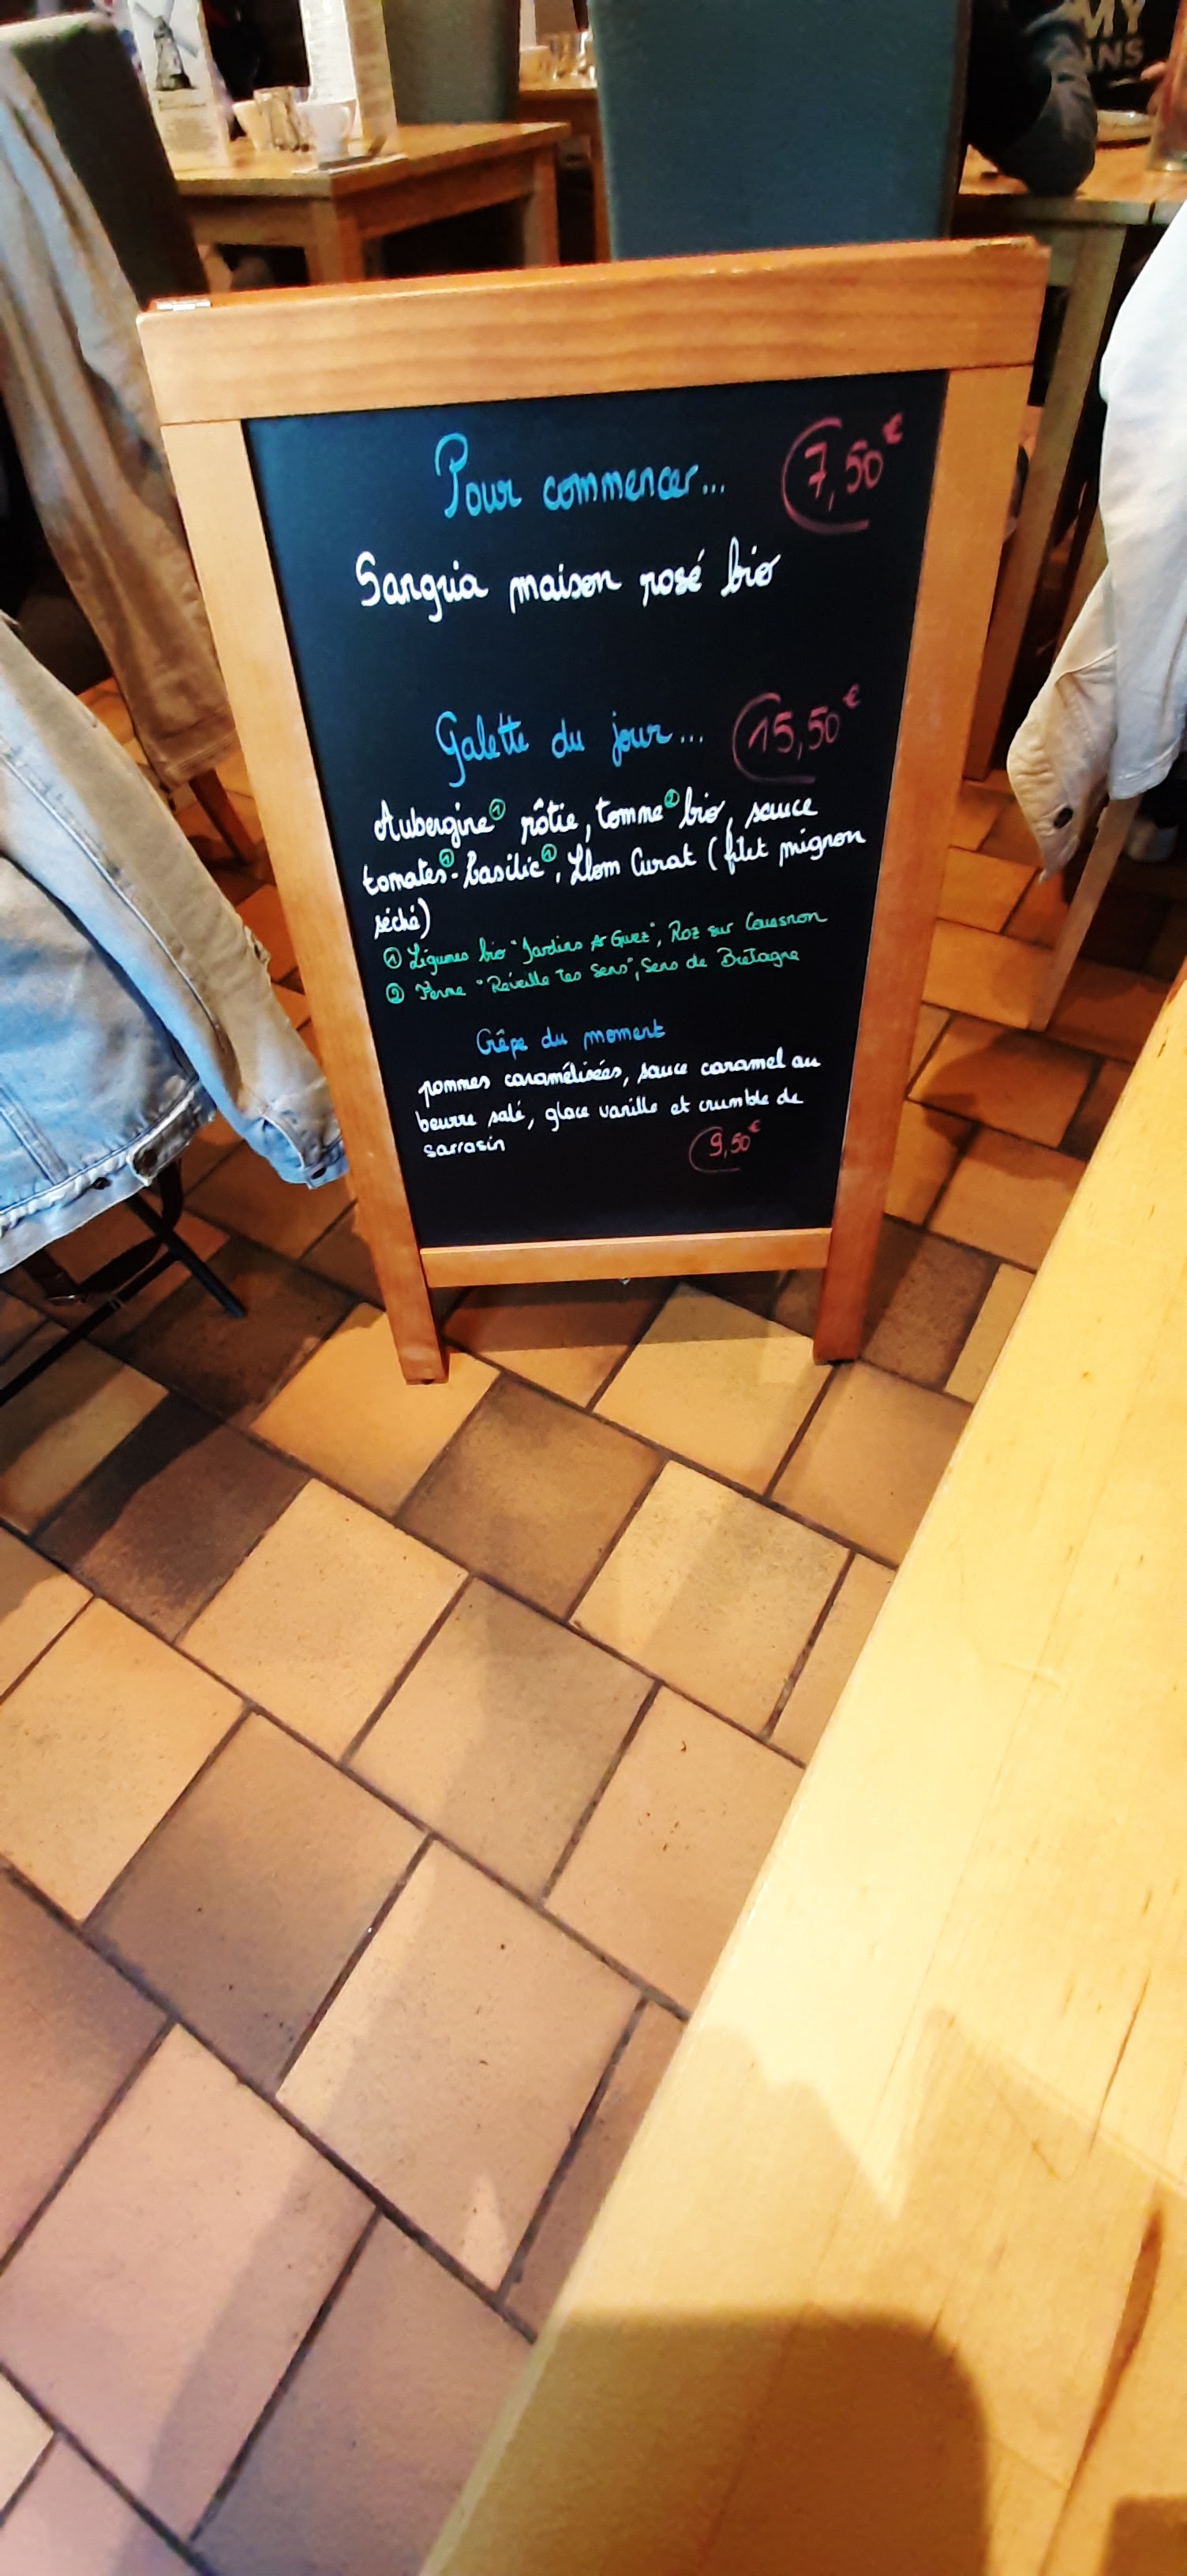 MY
ANS
Pour commencer... 7,50€
Sangria maison rosé bio
Galette du jour... 15,50€
Aubergine① rôtie, tomme② bio, sauce
tomates①-basilic①, Llom Curat (filet mignon
séché)
① Légumes bio "Jardins Ar Guez", Roz sur Couesnon
② Ferme "Réveille tes Sens", Sens de Bretagne
Crêpe du moment
pommes caramélisées, sauce caramel au
beurre salé, glace vanille et crumble de
sarrasin 9,50€